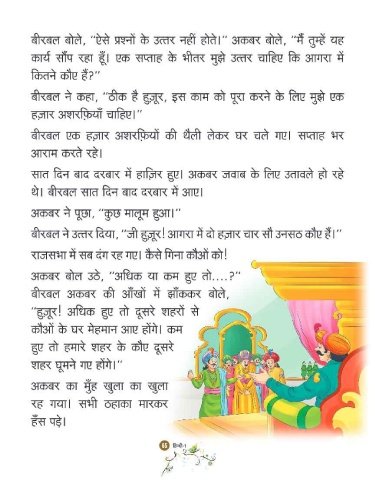 बीरबल बोले, "ऐसे प्रश्नों के उत्तर नहीं होते।" अकबर बोले, "मैं तुम्हें यह
कार्य सौंप रहा हूँ। एक सप्ताह के भीतर मुझे उत्तर चाहिए कि आगरा में
कितने कौए हैं?"
बीरबल ने कहा, "ठीक है हुज़ूर, इस काम को पूरा करने के लिए मुझे एक
हज़ार अशरफ़ियाँ चाहिए।"
बीरबल एक हज़ार अशरफ़ियों की थैली लेकर घर चले गए। सप्ताह भर
आराम करते रहे।
सात दिन बाद दरबार में हाज़िर हुए। अकबर जवाब के लिए उतावले हो रहे
थे। बीरबल सात दिन बाद दरबार में आए।
अकबर ने पूछा, "कुछ मालूम हुआ।"
बीरबल ने उत्तर दिया, "जी हुज़ूर! आगरा में दो हज़ार चार सौ उनसठ कौए हैं।"
राजसभा में सब दंग रह गए। कैसे गिना कौओं को!
अकबर बोल उठे, "अधिक या कम हुए तो....?"
बीरबल अकबर की आँखों में झाँककर बोले,
"हुज़ूर! अधिक हुए तो दूसरे शहरों से
कौओं के घर मेहमान आए होंगे। कम
हुए तो हमारे शहर के कौए दूसरे
शहर घूमने गए होंगे।"
अकबर का मुँह खुला का खुला
रह गया। सभी ठहाका मारकर
हँस पड़े।